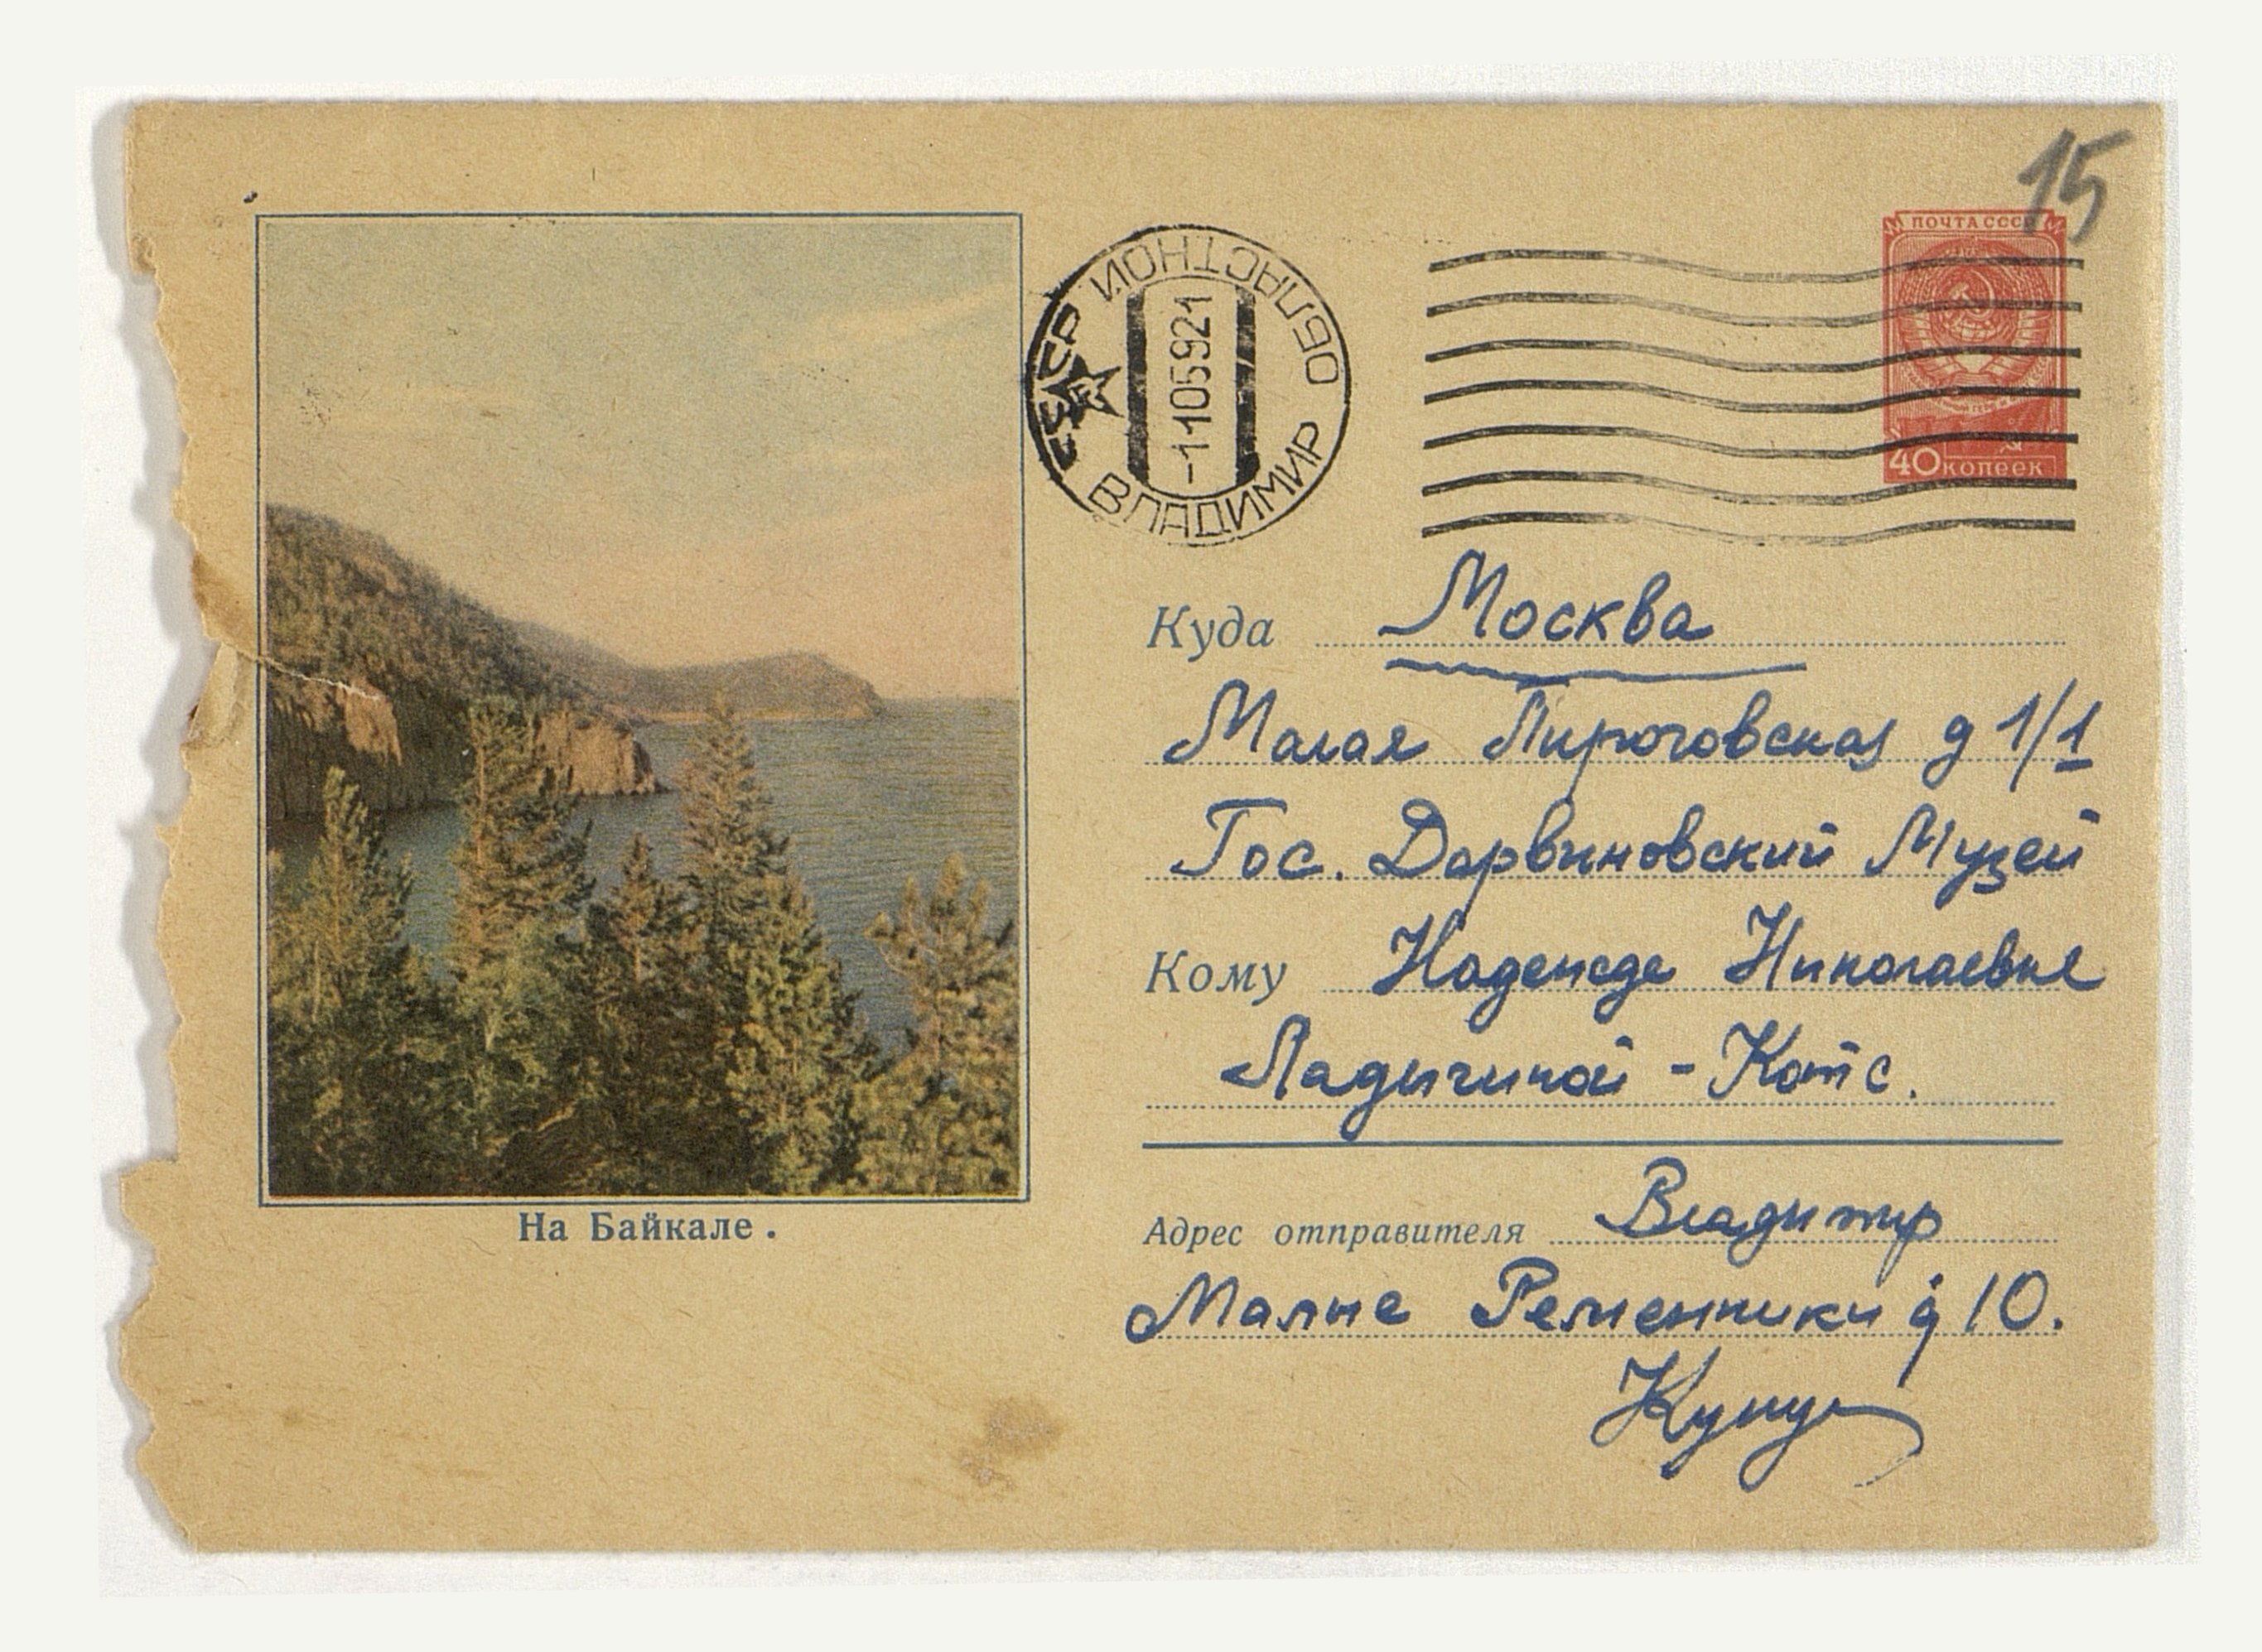 15
ПОЧТА СССР
40 копеек
СССР
ВЛАДИМИР ОБЛАСТНОЙ
-1105921
Куда Москва
Малая Пироговская д 1/1
Гос. Дарвиновский Музей
Кому Надежде Николаевне
Ладыгиной - Котс.
Адрес отправителя Владимир
Малые Ременники д 10.
На Байкале.